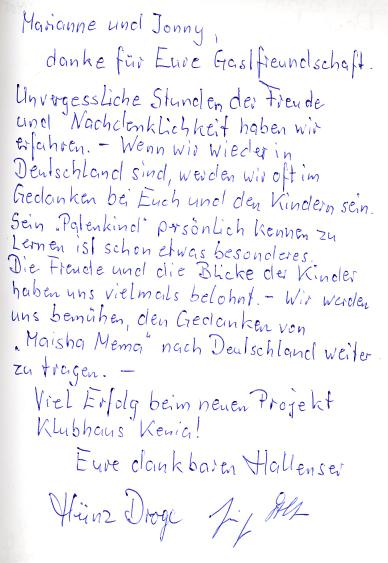 Marianne und Jonny,
danke für Eure Gastfreundschaft.
Unvergessliche Stunden der Freude
und Nachdenklichkeit haben wir
erfahren. – Wenn wir wieder in
Deutschland sind, werden wir oft im
Gedanken bei Euch und den Kindern sein.
Sein „Patenkind" persönlich kennen zu
Lernen ist schon etwas besonderes.
Die Freude und die Blicke der Kinder
haben uns vielmals belohnt. – Wir werden
uns bemühen, den Gedanken von
„Maisha Mema" nach Deutschland weiter
zu tragen. –
Viel Erfolg beim neuen Projekt
Klubhaus Kenia!
Eure dankbaren Hallenser
Heinz Droge